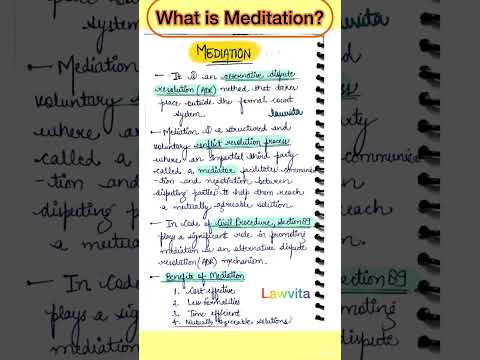 What is Meditation?
MEDIATION
— It is an alternative dispute
resolution (ADR) method that takes
place outside the formal court
system.
lawvita
— Mediation is a structured and
voluntary conflict resolution process
where an impartial third party
called a mediator facilitates communica
-tion and negotiation between
disputing parties to help them reach
a mutually agreeable solution.
— In Code of Civil Procedure, section 89
plays a significant role in promoting
mediation as an alternative dispute
resolution (ADR) mechanism.
— Benefits of Mediation
1. Cost effective
2. Less formalities
3. Time efficient
4. Mutually agreeable solutions
Lawvita